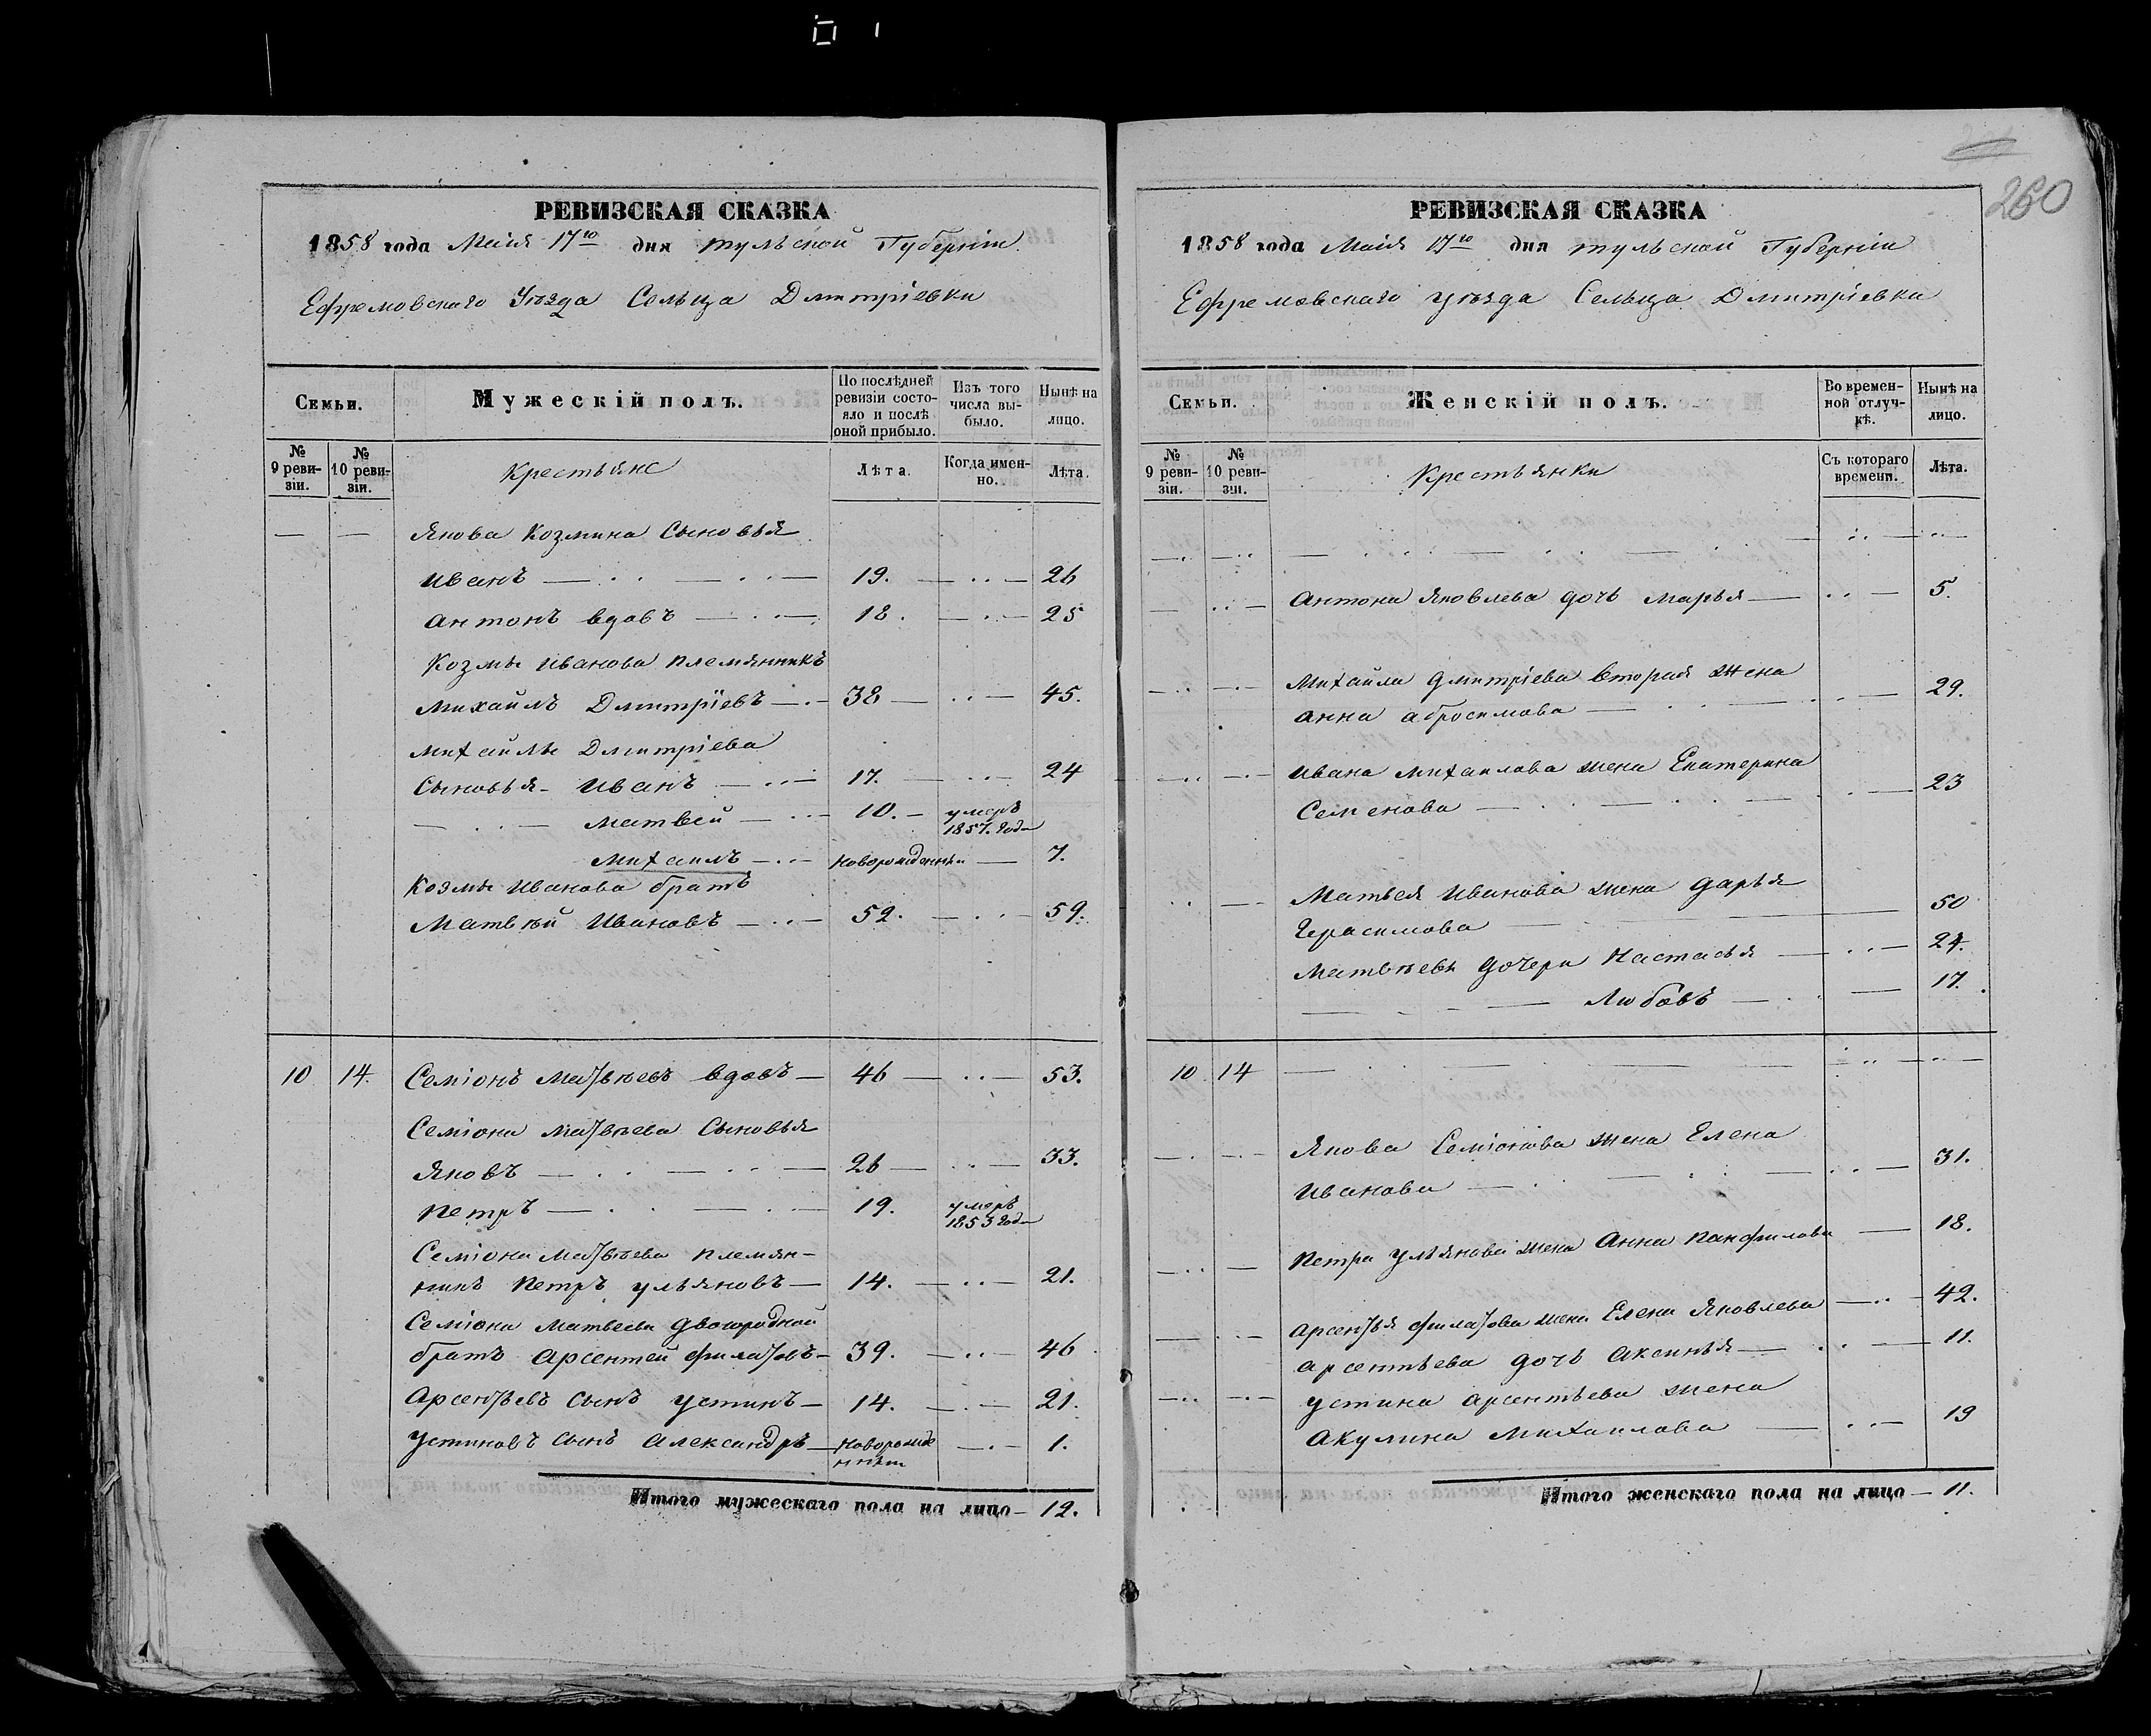 260
РЕВИЗСКАЯ СКАЗКА
1858 года Майя 17го дня Тульской Губернiи
Ефремовскаго Уѣзда Сельца Дмитрiевки
Семьи.
Мужескiй полъ.
По послѣдней ревизiи состояло и послѣ оной прибыло.
Изъ того числа выбыло.
Нынѣ на лицо.
№ 9 ревизiи.
№ 10 ревизiи.
Крестьяне
Лѣта.
Когда именно.
Лѣта.
— — Якова Козмина Сыновья
Иванъ — 19. — 26
Антонъ вдовъ — 18. — 25
Козмы Иванова племянникъ
Михайлъ Дмитрiевъ — 38 — 45.
Михайлы Дмитрiева
Сыновья - Иванъ — 17. — 24
Матвей — 10. — умеръ 1857. года
Михаилъ — новорожденны — 7.
Козмы Иванова братъ
Матвѣй Ивановъ — 52. — 59.
10 14. Семiонъ Матвѣевъ вдовъ — 46 — 53.
Семiона Матвѣева Сыновья
Яковъ — 26 — 33.
Петръ — 19. умеръ 1853 года
Семiона Матвѣева племян-
никъ Петръ Ульяновъ — 14. — 21.
Семiона Матвеева двоюродной
братъ Арсентей Филатовъ — 39. — 46
Арсентьевъ сынъ Устинъ — 14. — 21.
Устиновъ сынъ Александръ — новорожде — 1.
Итого мужескаго пола на лицо — 12.
РЕВИЗСКАЯ СКАЗКА
1858 года Майя 17го дня Тульской Губернiи
Ефремовскаго уѣзда Сельца Дмитрiевки
Семьи.
Женскiй полъ.
Во временной отлучкѣ.
Нынѣ на лицо.
№ 9 ревизiи.
№ 10 ревизiи.
Крестьянки
Съ котораго времени.
Лѣта.
Антона Яковлева дочь Марья — 5.
Михайла Дмитрiева вторая жена
Анна Абросимова — 29.
Ивана Михаилова жена Екатерина
Семенова — 23
Матвея Иванова жена Дарья
Герасимова — 50
Матвѣевы дочери Настасья — 24.
Любовь — 17.
10 14
Якова Семiонова жена Елена
Иванова — 31.
Петра Ульянова жена Анна Панфилова — 18.
Арсентья Филатова жена Елена Яковлева — 42.
Арсентьева дочь Аксинья — 11.
Устина Арсентьева жена
Акулина Михаилова — 19
Итого женскаго пола на лицо — 11.